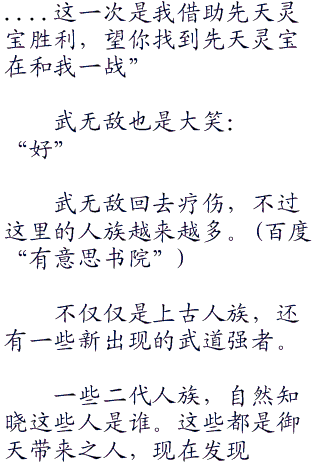 ....这一次是我借助先天灵
宝胜利，望你找到先天灵宝
在和我一战”
武无敌也是大笑：
“好”
武无敌回去疗伤，不过
这里的人族越来越多。(百度
“有意思书院”)
不仅仅是上古人族，还
有一些新出现的武道强者。
一些二代人族，自然知
晓这些人是谁。这些都是御
天带来之人，现在发现